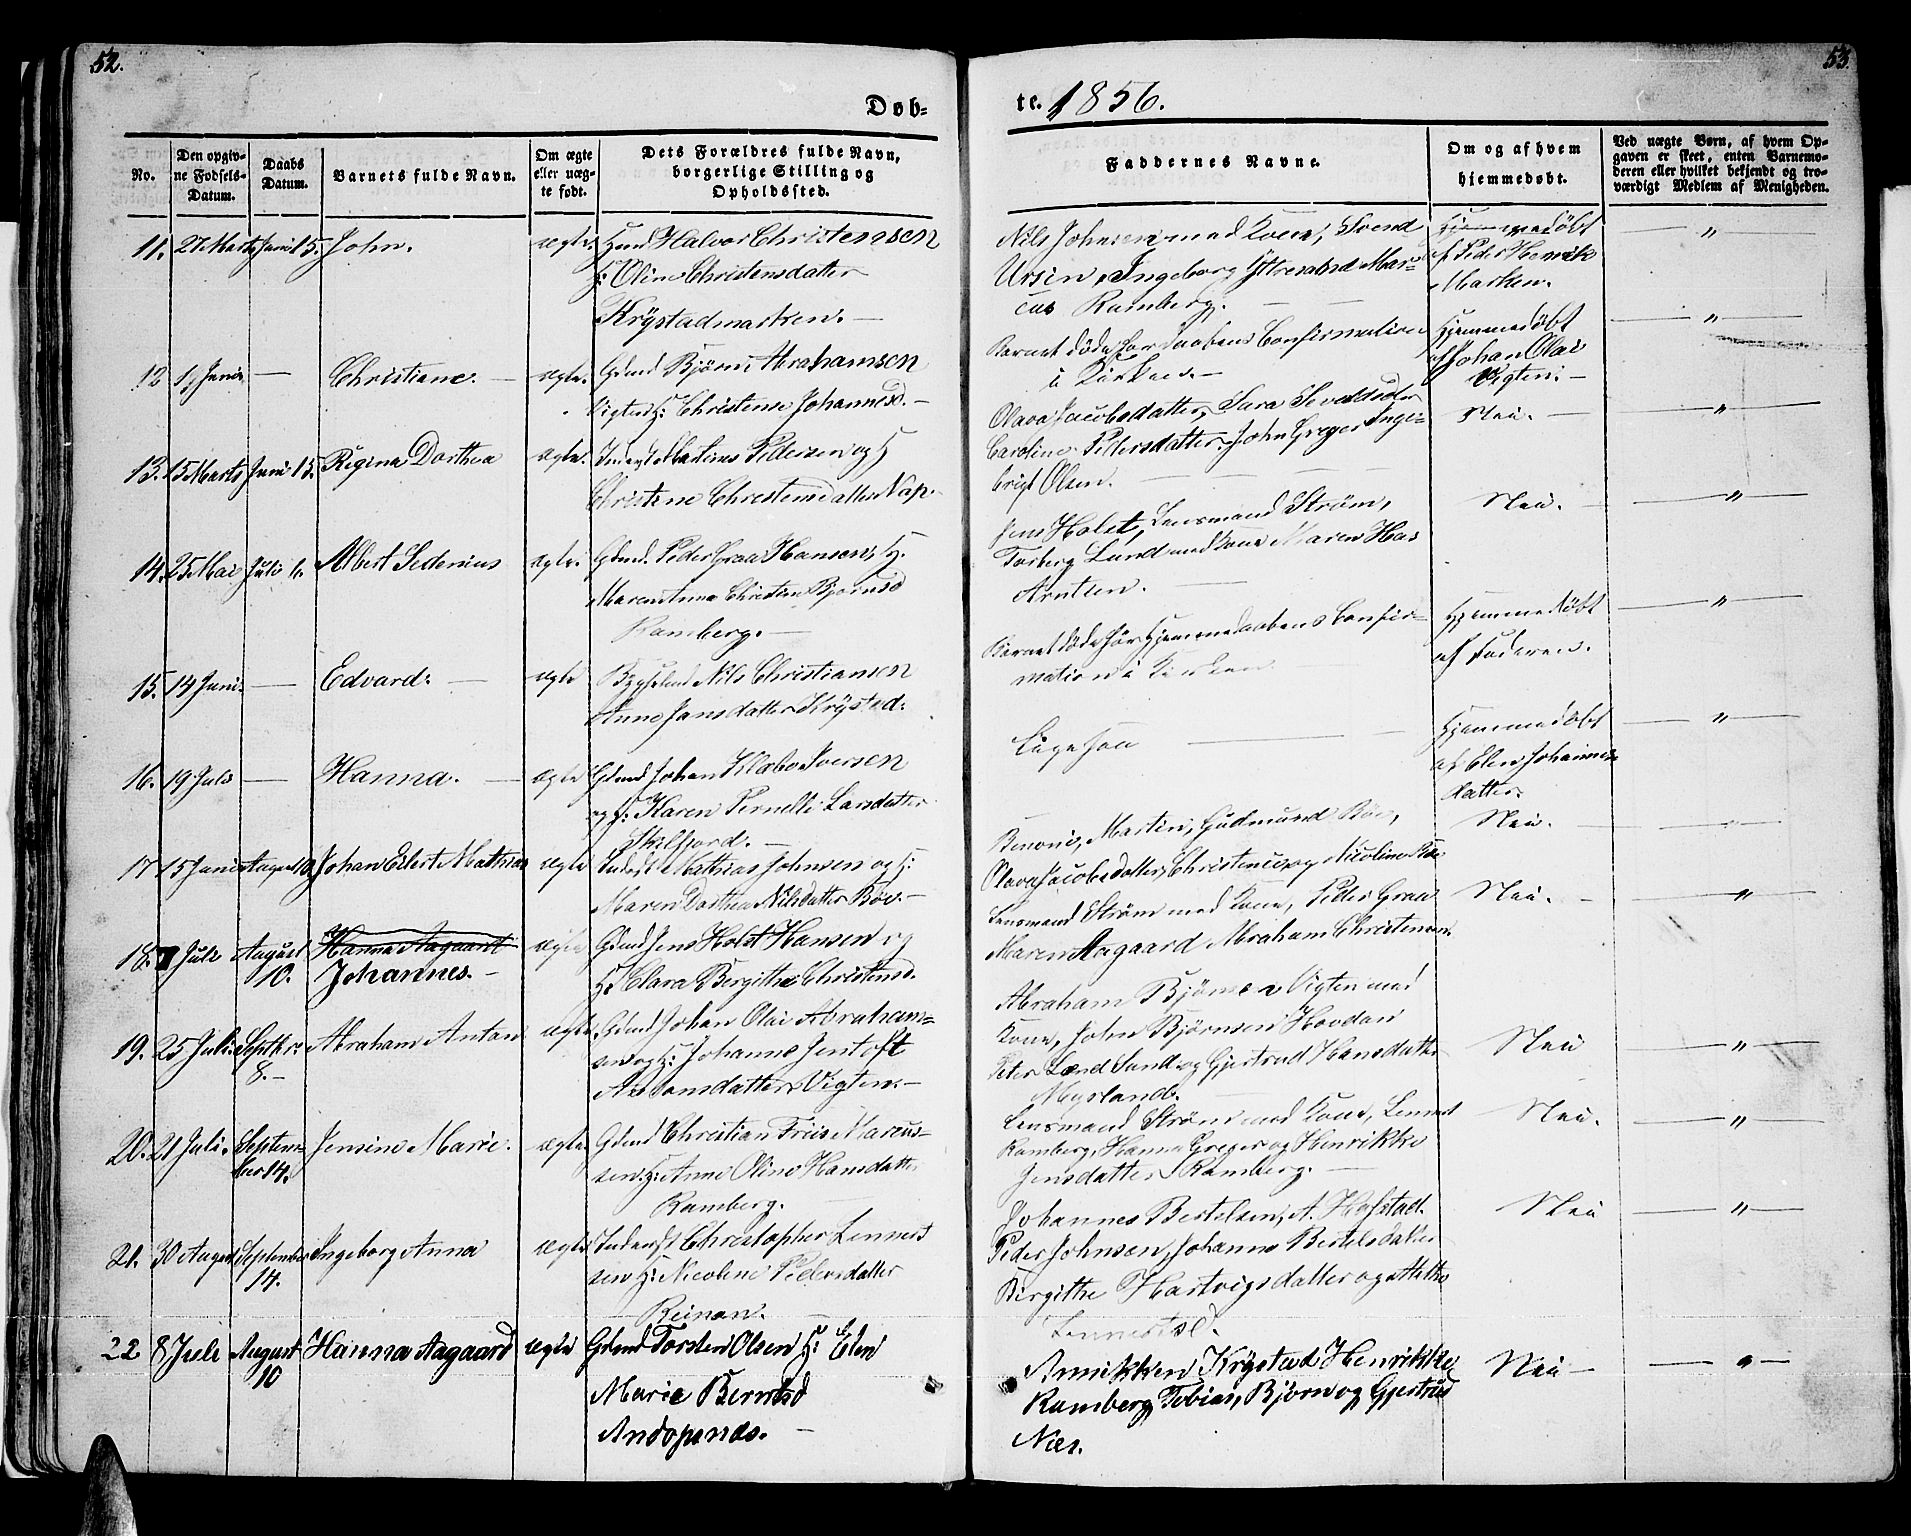 52.
53.
Døb-
te. 1856.
No.
Den opgiv-
ne Fødsels-
Datum.
Daabs
Datum.
Barnets fulde Navn.
Om ægte
eller uæg-
te født.
Dets Forældres fulde Navn,
borgerlige Stilling og
Opholdssted.
Faddernes Navne.
Om og af hvem
hjemmedøbt.
Ved uægte Børn, af hvem Op-
gaven er skeet, enten Barnemo-
deren eller hvilket bekjendt og tro-
værdigt Medlem af Menigheden.
11. 27 Marts Juni 15. John. ægte. Halvor Christensen
H: Oline Christensdatter
Krystadmarken. —
Nils Johnsen med Kone, Svend
Ursin, Ingeborg Mar-
cus Ramberg. —
Hjemmedøbt
af Peder Henrik
Marken.
— " —
12 1. Juni — Christiane. — ægte. Gdmd Bjørn Abrahamsen
Vigten H: Christense Johannesd. —
Barnet døde før Daabens Confirmation
i Kirken. —
Hjemmedøbt
af Johan Olai
Vigten. —
— " —
13. 15 Marts Juni 15. Regina Dorthea ægte. Martinus Pedersen og H
Christene Christensdatter Nap. —
Olava Jacobsdatter, Sara
Caroline Pedersdatter, John Greger Inge-
brigt Olsen. —
Nei. —
— " —
14. 25 Mai Juli 6. Albert Sederius ægte. Gdmd. Peder Graa Hansen, H.
Maren Anna Christine Bjørnsd
Ramberg. —
Jens Holst, Lensmand Strøm,
Torberg Lund med Kone Maren
Arntsen. —
Nei. —
— " —
15. 14 Juni. — Edvard. — ægte Nils Christiansen
Anne Jansdatter Krystad.
Barnet døde før Hjemmedaabens Confir-
mation i Kirken
Hjemmedøbt
af Faderen.
— " —
16. 19 Juli — Hanna. — ægte Gdmd Johan Klæbo Iversen
og H: Karen Pernelle Larsdatter
Skelfjord. —
Ligesaa —
Hjemmedøbt
af Elen Johannes-
datter.
— " —
17 15 Juni August 10 Johan Eilert Mathias ægte Inderst Mathias Johnsen og H:
Maren Dorthea Nilsdatter Bøe. —
Benoni, Martin, Gudmund Bøe,
Olava Jacobsdatter, Christence og Nicoline
Nei.
— " —
18. 7 Juli August
10. Hanna Aagaard
Johannes. — ægte Gdmd Jens Holst Hansen og
H: Clara Bergitha Christensd.
Lensmand Strøm med Kone, Peder Graa
Maren Aagaard Abraham Christensen.
Nei. —
— " —
19. 25 Juli. Septbr.
8. — Abraham Antan ægte. Gdmd Johan Olai Abraham-
sen og H: Johanne Jentoft
Antonsdatter Vigten. —
Abraham Bjørnsen Vigten med
Kone, John Bjørnsen Hovdan
Peter Lænd Sund og Gjertrud Hansdatter
Myrland. —
Nei
— " —
20. 21 Juli. Septem-
ber 14. Jensine Marie. ægte Gdmd Christian Friis Marcus-
sen. H: Anne Oline Hansdatter
Ramberg. —
Lensmand Strøm med Kone, Lennert
Ramberg, Hanna Greger og Henrikke
Jensdatter Ramberg. —
Nei.
— " —
21. 30 August September
14. Ingeborg Anna ægte Inderst Christopher Lennert
sen H: Nicoline Pedersdatter
Reinan. —
Johannes Bertelsen, A. Hafstad.
Peder Johnsen, Johanne Bertelsdatter
Birgithe Hartvigsdatter og
Lennertsd.
Nei
— " —
22 8 Juli August
10 Hanna Aagaard ægte Gdmd Torsten Olsen H: Elen
Marie Berntsd
Andopsnæs. —
Annikken Krystad Henrikke
Ramberg Tobias, Bjørn og Gjertrud
Næs.
Nei —
— " —